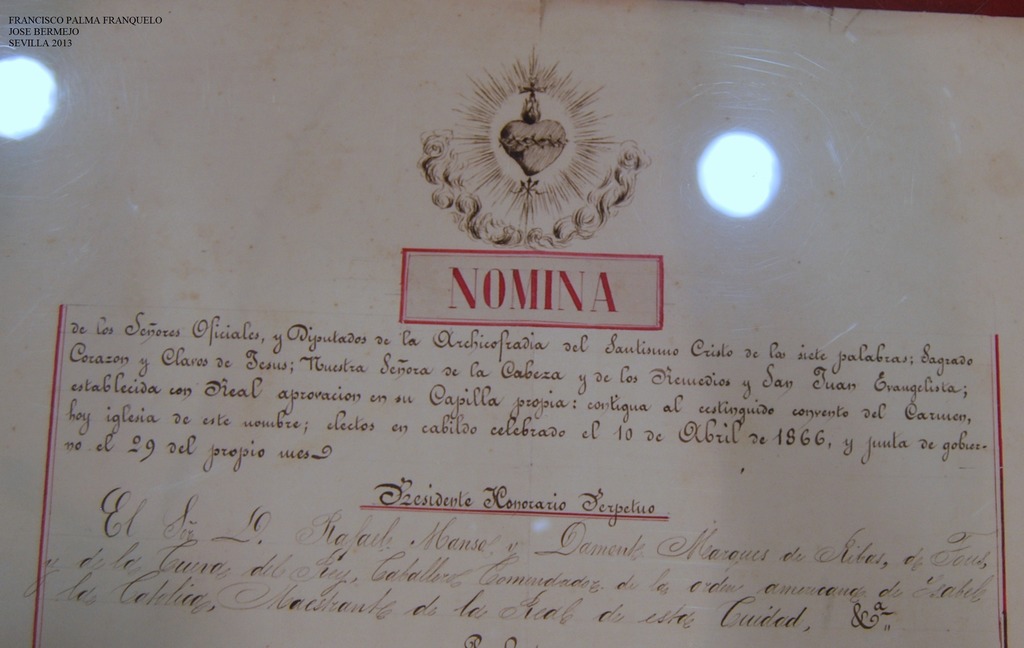 FRANCISCO PALMA FRANQUELO
JOSE BERMEJO
SEVILLA 2013
NOMINA
de los Señores Oficiales, y Diputados de la Archicofradia del Santisimo Cristo de las siete palabras; Sagrado
Corazon y Clavos de Jesus; Nuestra Señora de la Cabeza y de los Remedios y San Juan Evangelista;
establecida con Real aprovacion en su Capilla propia: contigua al estinguido convento del Carmen,
hoy iglesia de este nombre; electos en cabildo celebrado el 10 de Abril de 1866, y junta de gobier-
no el 29 del propio mes
Presidente Honorario Perpetuo
El Sor. D. Rafael Manso y Marques de Ribas, de Tous,
y de la del Rey, Caballero Comendador de la orden americana de Isabel
la Católica, Maestrante de la Real de esta Ciudad, &a